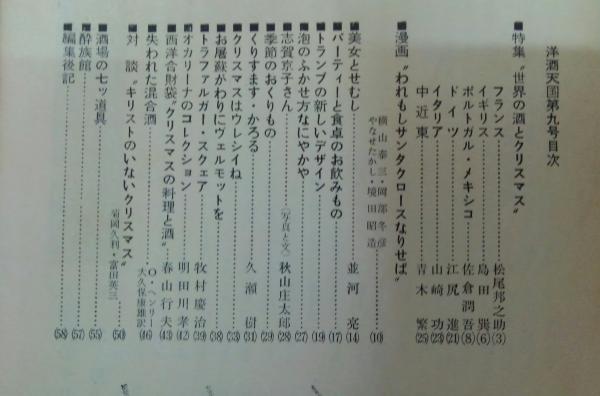 洋酒天国第九号目次
■特集〝世界の酒とクリスマス〟
フランス……松尾邦之助(3)
イギリス……島田巽(6)
ポルトガル・メキシコ……佐倉潤吾(8)
ドイツ……江尻進(21)
イタリア……山崎功(23)
中近東……青木繁(25)
■漫画〝われもしサンタクロースなりせば〟
横山泰三・岡部冬彦
やなせたかし・境田昭造……(10)
■美女とせむし……並河亮(14)
■パーティーと食卓のお飲みもの……(17)
■トランプの新しいデザイン……(19)
■泡のふかせ方なにやかや……(27)
■志賀京子さん……(写真と文)秋山庄太郎(28)
■季節のおくりもの……(29)
■くりすます・かろる……久瀬樹(31)
■クリスマスはウレシイね……(33)
■お屠蘇がわりにヴェルモットを……(38)
■トラファルガー・スクェア……牧村慶治(39)
■オカリーナのコレクション……明田川孝(42)
■西洋合財袋〝クリスマスの料理と酒〟……春山行夫(43)
■失われた混合酒……O・ヘンリー
大久保康雄訳(46)
■対談〝キリストのいないクリスマス〟
菊岡久利・富田英三……(50)
■酒場の七ッ道具……(55)
■酔族館……(57)
■編集後記……(58)